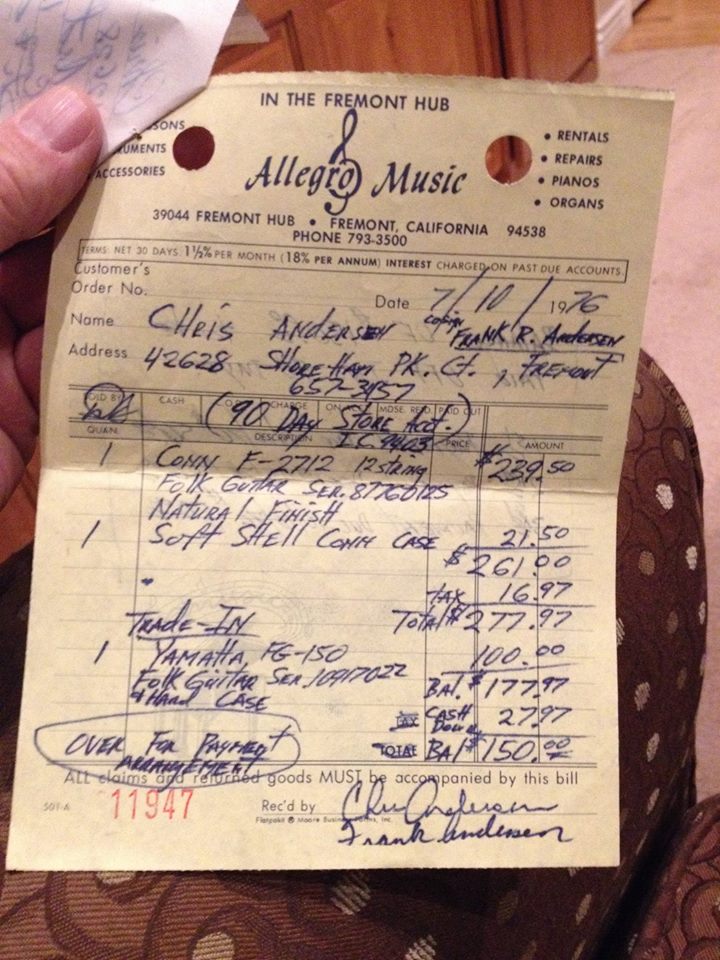 IN THE FREMONT HUB
SONS
UMENTS
ACCESSORIES
Allegro Music
• RENTALS
• REPAIRS
• PIANOS
• ORGANS
39044 FREMONT HUB • FREMONT, CALIFORNIA 94538
PHONE 793-3500
TERMS: NET 30 DAYS 1½% PER MONTH (18% PER ANNUM) INTEREST CHARGED ON PAST DUE ACCOUNTS.
Customer's
Order No.
Date 7/10/1976
Name CHRIS ANDERSEN cosign FRANK R. ANDERSEN
Address 42628 SHOREHAM PK. CT., FREMONT
657-3457
SOLD BY CASH CHARGE MDSE. RETD. PAID OUT
(90 DAY STORE ACCT.)
QUAN. DESCRIPTION PRICE AMOUNT
1 CONN F-2712 12 string $239.50
FOLK GUITAR SER. 87760125
NATURAL FINISH
1 SOFT SHELL CONN CASE 21.50
$261.00
TAX 16.97
TRADE-IN TOTAL $277.97
1 YAMAHA FG-150 100.00
FOLK GUITAR SER. 10917022 BAL. $177.97
& HARD CASE
TAX CASH DOWN 27.97
OVER FOR PAYMENT ARRANGEMENT
TOTAL BAL $150.00
ALL claims and returned goods MUST be accompanied by this bill
501-A 11947 Rec'd by Chris Andersen
Flatpakit ® Moore Business Forms, Inc.
Frank Andersen